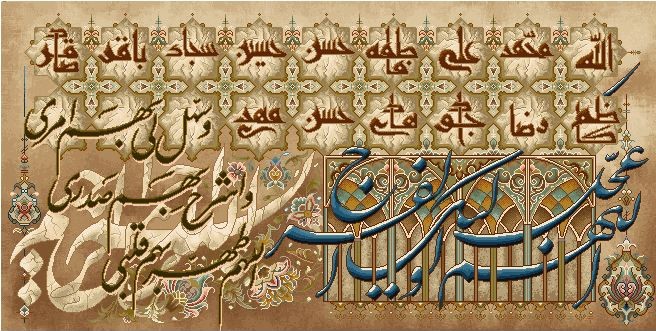 الله محمد علی فاطمه حسن حسین سجاد باقر صادق
کاظم رضا جواد هادی حسن مهدی
وسهل لی بهم امری
واشرح بهم صدری
اللهم طهر بهم قلبی
اللهم عجل لولیک الفرج